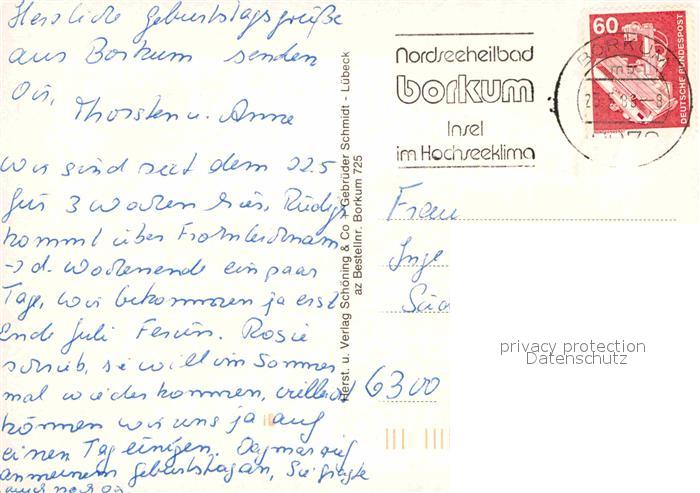 Herzliche Geburtstagsgrüße
aus Borkum senden
Dir, Thorsten u. Anne
Wir sind seit dem 22.5
für 3 Wochen hier, Rüdiger
kommt über Fronleichnam
→ d. Wochenende ein paar
Tage, wir bekommen ja erst
Ende Juli Ferien. Rosie
schrieb, sie will im Sommer
mal wiederkommen, vielleicht
können wir uns ja auf
einen Tag einigen. Dagmar rief
an meinem Geburtstag an, Sie fragte
auch nach
Herst. u. Verlag Schöning & Co + Gebrüder Schmidt - Lübeck
az Bestellnr. Borkum 725
Nordseeheilbad
borkum
Insel
im Hochseeklima
60
DEUTSCHE BUNDESPOST
BORKUM
Frau
Inge
6300
privacy protection
Datenschutz